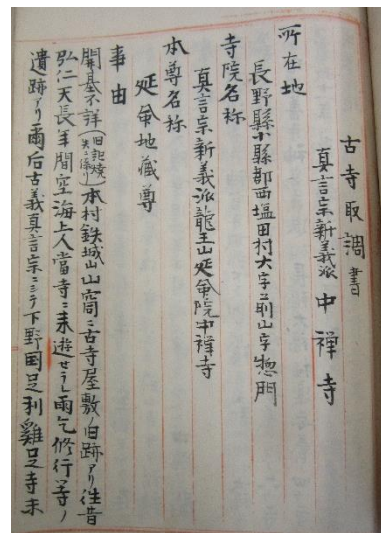 古寺取調書
真言宗新義派 中禅寺
所在地
長野縣小縣郡西塩田村大字前山字惣門
寺院名称
真言宗新義派龍王山延命院中禅寺
本尊名称
延命地蔵尊
事由
開基不詳(旧記焼失ニ係リ)本村鉄城山山窩ニ古寺屋敷ノ旧跡アリ往昔
弘仁天長年間空海上人當寺ニ来遊セラレ雨乞修行等ノ
遺跡アリ爾后古義真言宗ニシテ下野国足利雞足寺末